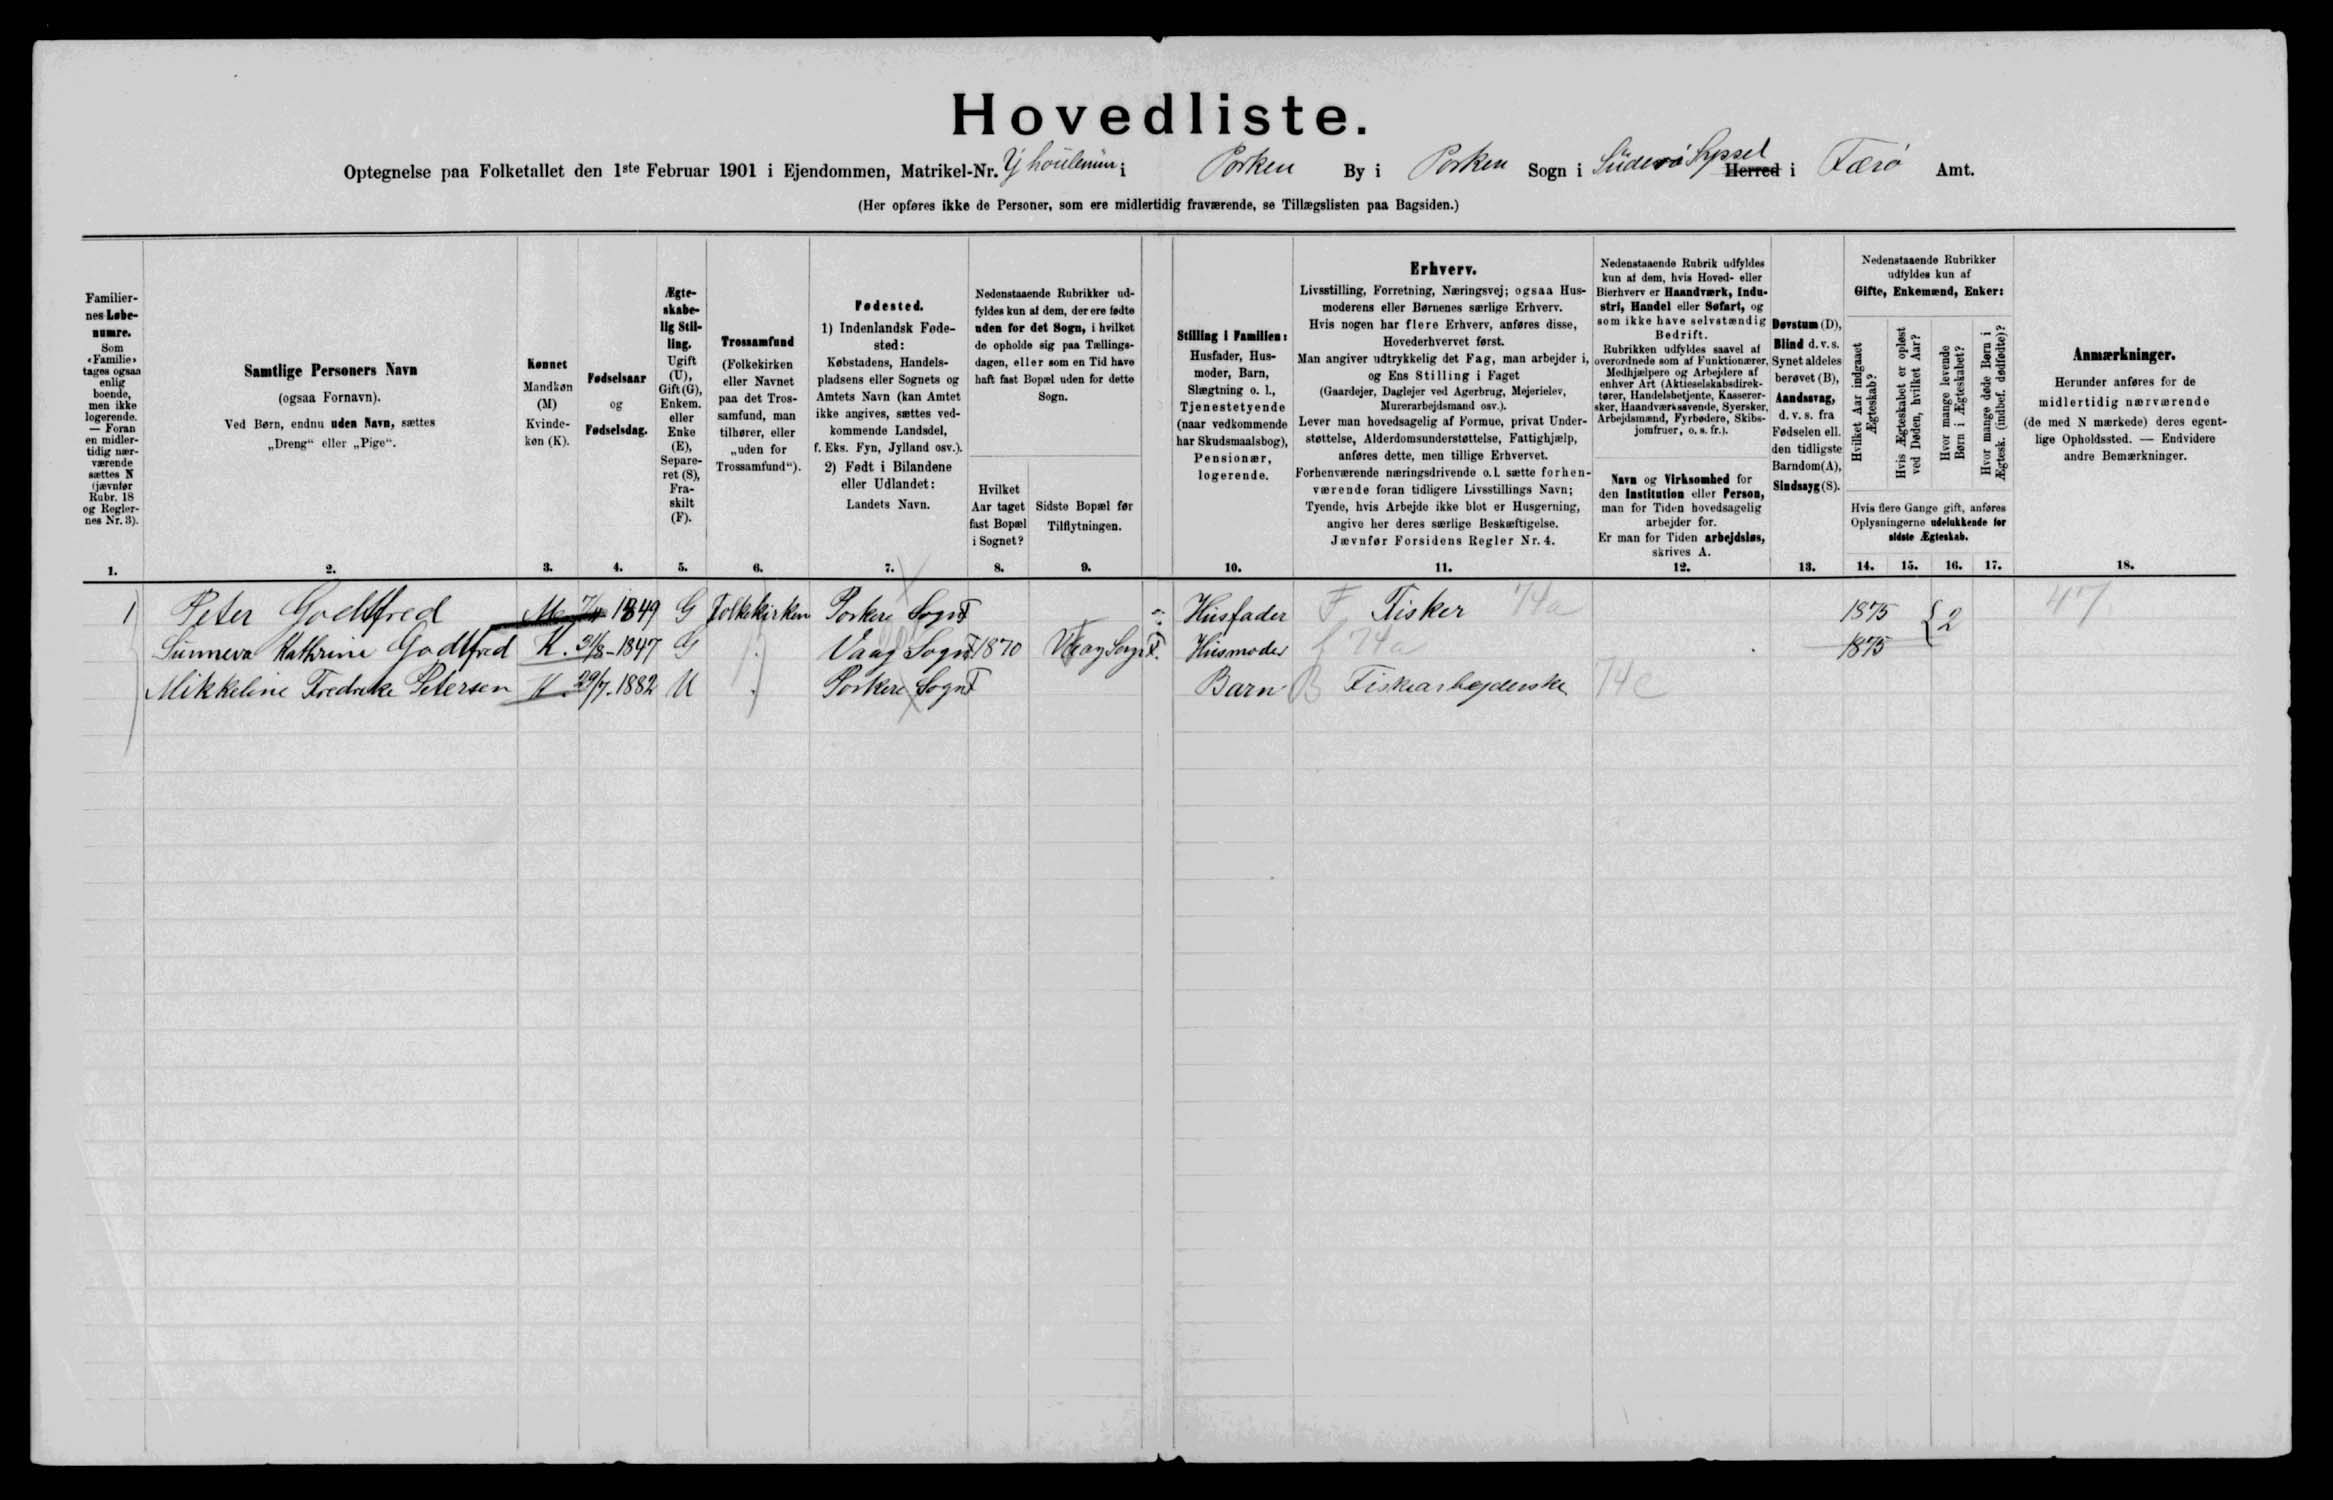 Hovedliste.
Optegnelse paa Folketallet den 1ste Februar 1901 i Ejendommen, Matrikel-Nr. i Porken By i Porken Sogn i Süderø Syssel Herred i Færø Amt.
(Her opføres ikke de Personer, som ere midlertidig fraværende, se Tillægslisten paa Bagsiden.)
Familier-
nes Løbe-
numre.
Som
«Familie»
tages ogsaa
enlig
boende,
men ikke
logerende.
— Foran
en midler-
tidig nær-
værende
sættes N
(jævnfør
Rubr. 18
og Regler-
nes Nr. 3).
1.
Samtlige Personers Navn
(ogsaa Fornavn).
Ved Børn, endnu uden Navn, sættes
„Dreng“ eller „Pige“.
2.
Kønnet
Mandkøn
(M)
Kvinde-
køn (K).
3.
Fødselsaar
og
Fødselsdag.
4.
Ægte-
skabe-
lig Stil-
ling.
Ugift
(U),
Gift (G),
Enkem.
eller
Enke
(E),
Separe-
ret (S),
Fra-
skilt
(F).
5.
Trossamfund
(Folkekirken
eller Navnet
paa det Tros-
samfund, man
tilhører, eller
„uden for
Trossamfund“).
6.
Fødested.
1) Indenlandsk Føde-
sted:
Købstadens, Handels-
pladsens eller Sognets og
Amtets Navn (kan Amtet
ikke angives, sættes ved-
kommende Landsdel,
f. Eks. Fyn, Jylland osv.).
2) Født i Bilandene
eller Udlandet:
Landets Navn.
7.
Nedenstaaende Rubrikker ud-
fyldes kun af dem, der ere fødte
uden for det Sogn, i hvilket
de opholde sig paa Tællings-
dagen, eller som en Tid have
haft fast Bopæl uden for dette
Sogn.
Hvilket
Aar taget
fast Bopæl
i Sognet?
8.
Sidste Bopæl før
Tilflytningen.
9.
Stilling i Familien:
Husfader, Hus-
moder, Barn,
Slægtning o. l.,
Tjenestetyende
(naar vedkommende
har Skudsmaalsbog),
Pensionær,
logerende.
10.
Erhverv.
Livsstilling, Forretning, Næringsvej; ogsaa Hus-
moderens eller Børnenes særlige Erhverv.
Hvis nogen har flere Erhverv, anføres disse,
Hovederhvervet først.
Man angiver udtrykkelig det Fag, man arbejder i,
og Ens Stilling i Faget
(Gaardejer, Daglejer ved Agerbrug, Mejerielev,
Murerarbejdsmand osv.).
Lever man hovedsagelig af Formue, privat Under-
støttelse, Alderdomsunderstøttelse, Fattighjælp,
anføres dette, men tillige Erhvervet.
Forhenværende næringsdrivende o. l. sætte forhen-
værende foran tidligere Livsstillings Navn;
Tyende, hvis Arbejde ikke blot er Husgerning,
angive her deres særlige Beskæftigelse.
Jævnfør Forsidens Regler Nr. 4.
11.
Nedenstaaende Rubrik udfyldes
kun af dem, hvis Hoved- eller
Bierhverv er Haandværk, Indu-
stri, Handel eller Søfart, og
som ikke have selvstændig
Bedrift.
Rubrikken udfyldes saavel af
overordnede som af Funktionærer,
Medhjælpere og Arbejdere af
enhver Art (Aktieselskabsdirek-
tører, Handelsbetjente, Kasserer-
sker, Haandværkssvende, Syersker,
Arbejdsmænd, Fyrbødere, Skibs-
jomfruer, o. s. fr.).
Navn og Virksomhed for
den Institution eller Person,
man for Tiden hovedsagelig
arbejder for.
Er man for Tiden arbejdsløs,
skrives A.
12.
Døvstum (D),
Blind d. v. s.
Synet aldeles
berøvet (B),
Aandssvag,
d. v. s. fra
Fødselen ell.
den tidligste
Barndom (A),
Sindssyg (S).
13.
Nedenstaaende Rubrikker
udfyldes kun af
Gifte, Enkemænd, Enker:
Hvilket Aar indgaaet
Ægteskab?
Hvis Ægteskabet er opløst
ved Døden, hvilket Aar?
Hvor mange levende
Børn i Ægteskabet?
Hvor mange døde Børn i
Ægtesk. (indbef. dødfødte)?
Hvis flere Gange gift, anføres
Oplysningerne udelukkende for
sidste Ægteskab.
14. 15. 16. 17.
Anmærkninger.
Herunder anføres for de
midlertidig nærværende
(de med N mærkede) deres egent-
lige Opholdssted. — Endvidere
andre Bemærkninger.
18.
1 Peter Godtfred M 1849 G Folkekirken Porkere Sogn F Husfader F Fisker 74a 1875 { 2 47
Sunneva Kathrine Godtfred K. 31/8 - 1847 G Vaag Sogn F 1870 Vaag Sogn F. Husmoder f 74a 1875
Mikkeline Fredrekke Petersen K. 29/7. 1882 U Porkere Sogn F Barn B Fiskearbejderske 74c